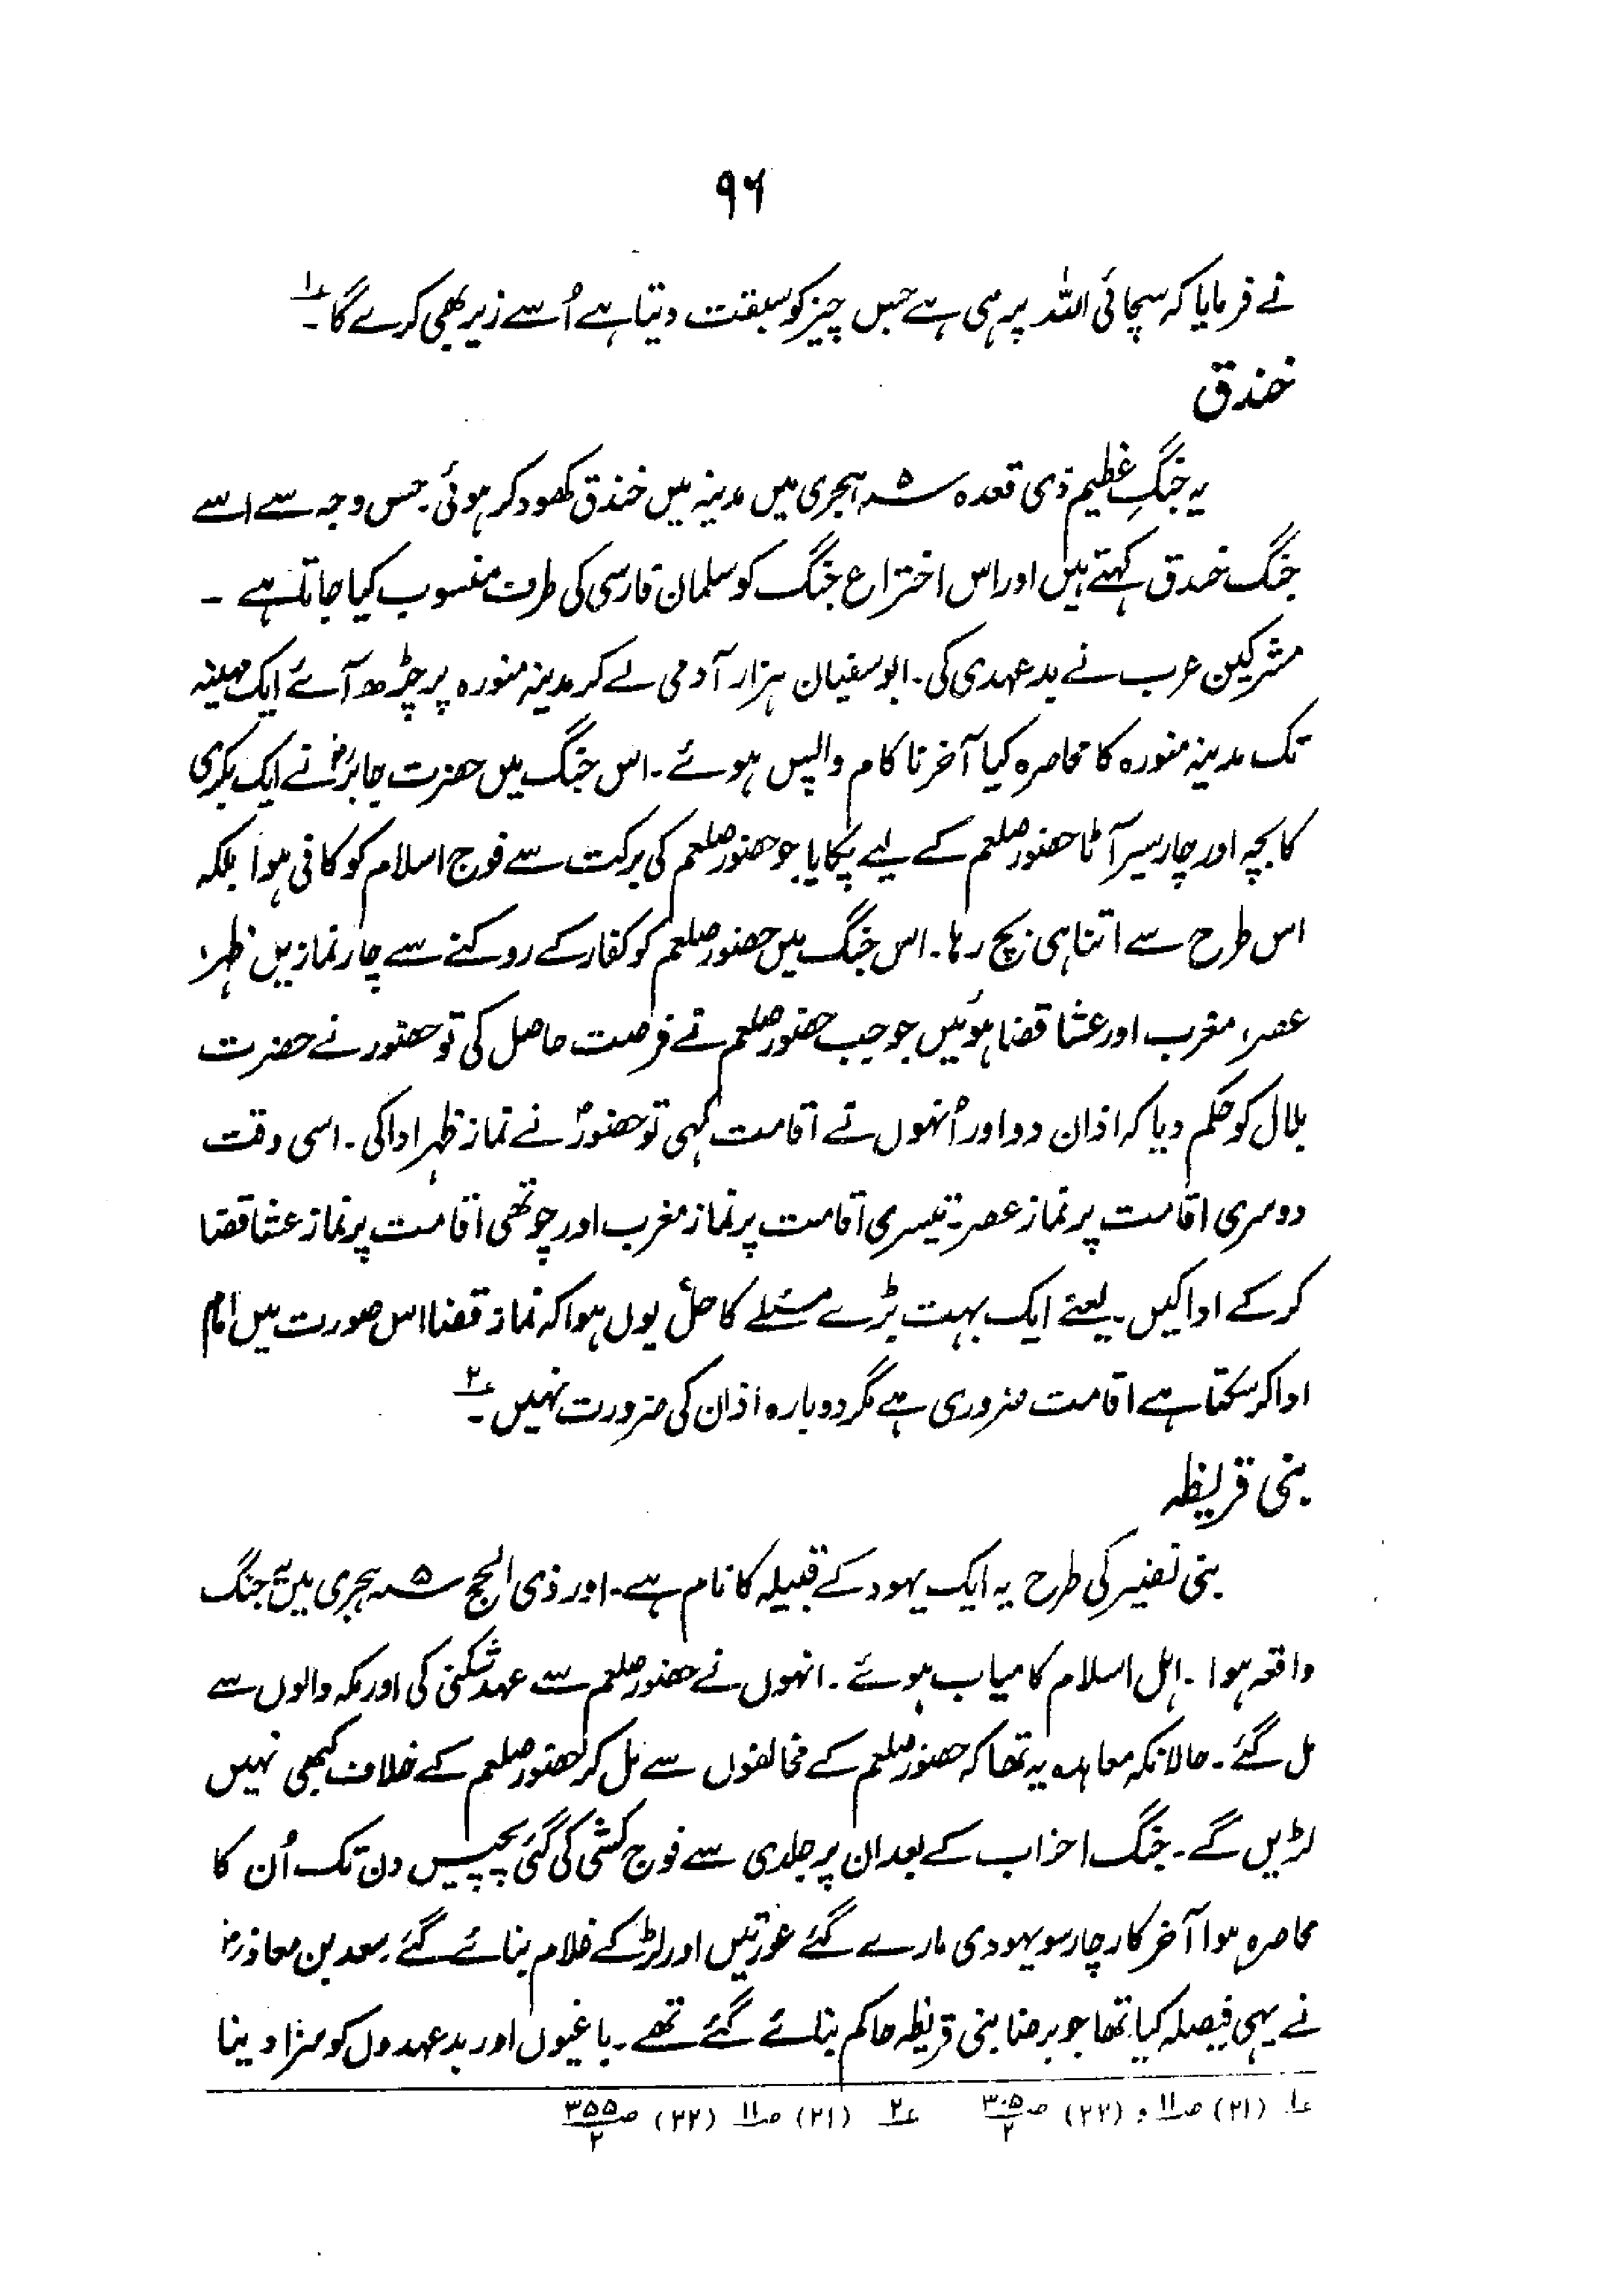 ۹۶
نے فرمایا کہ سچائی اللہ پر ہی ہے جس چیز کو سبقت دیتا ہے اُسے زیر بھی کرے گا۔ ؏۱
خندق
یہ جنگِ عظیم ذی قعدہ ۵ھ ہجری میں مدینہ میں خندق کھود کر ہوئی۔ جس وجہ سے اسے
جنگ خندق کہتے ہیں اور اس اختراع جنگ کو سلمان فارسی کی طرف منسوب کیا جاتا ہے ۔
مشرکین عرب نے بد عہدی کی۔ ابو سفیان ہزار آدمی لے کر مدینہ منورہ پر چڑھ آئے ایک مہینہ
تک مدینہ منورہ کا محاصرہ کیا آخر ناکام واپس ہوئے۔ اس جنگ میں حضرت جابرؓ نے ایک بکری
کا بچہ اور چار سیر آٹا حضور صلعم کے لیے پکایا جو حضور صلعم کی برکت سے فوج اسلام کو کافی ہوا بلکہ
اس طرح سے اتنا ہی بچ رہا۔ اس جنگ میں حضور صلعم کو کفار کے روکنے سے چار نمازیں ظہر،
عصر، مغرب اور عشا قضا ہوئیں جو جب حضور صلعم نے فرصت حاصل کی تو حضور نے حضرت
بلال کو حکم دیا کہ اذان دو اور اُنہوں نے اقامت کہی تو حضورؐ نے نماز ظہر ادا کی۔ اسی وقت
دوسری اقامت پر نماز عصر۔ تیسری اقامت پر نماز مغرب اور چوتھی اقامت پر نماز عشا قضا
کر کے ادا کیں۔ یعنے ایک بہت بڑے مسئلے کا حل یوں ہوا کہ نماز قضا اس صورت میں امام
ادا کر سکتا ہے اقامت ضروری ہے مگر دوبارہ اذان کی ضرورت نہیں۔ ؏۲
بنی قریظہ
بنی نضیر کی طرح یہ ایک یہود کے قبیلہ کا نام ہے۔ اور ذی الحج ۵ھ ہجری میں یہ جنگ
واقعہ ہوا ۔ اہل اسلام کامیاب ہوئے ۔ انہوں نے حضور صلعم سے عہد شکنی کی اور مکہ والوں سے
مل گئے۔ حالانکہ معاہدہ یہ تھا کہ حضور صلعم کے مخالفوں سے مل کر حضور صلعم کے خلاف کبھی نہیں
لڑیں گے۔ جنگ احزاب کے بعد ان پر جلدی سے فوج کشی کی گئی پچیس دن تک اُن کا
محاصرہ ہوا آخر کار چار سو یہودی مارے گئے عورتیں اور لڑکے غلام بنائے گئے۔ سعد بن معاذؓ
نے یہی فیصلہ کیا تھا جو برضا بنی قریظہ حاکم بنائے گئے تھے۔ باغیوں اور بد عہدوں کو سزا دینا
؏۱ (۲۱) ص۱۱ و (۲۲) ص۳۰۵/۲ ؏۲ (۲۱) ص۱۱ (۲۲) ص۳۵۵/۲